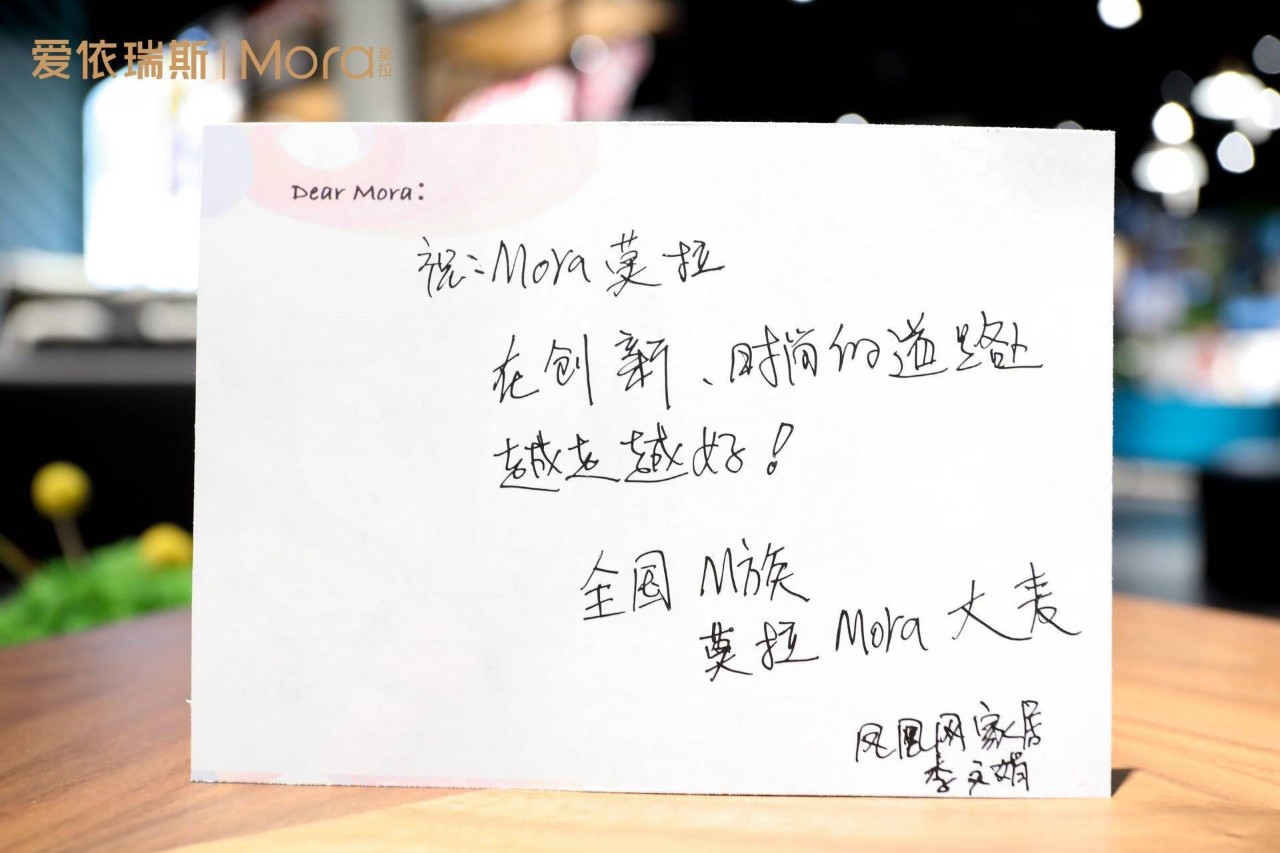 爱依瑞斯 | Mora 莫拉
Dear Mora:
祝:Mora莫拉
在创新、时尚的道路上
越走越好!
全国 M族
莫拉 Mora 大麦
凤凰网家居
李文娟